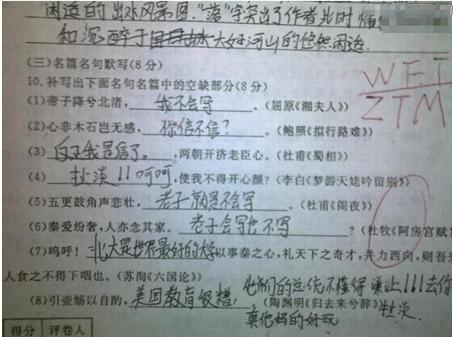 闲适的出水风景图."落"字突出了作者此时
和沉醉于大好河山的悠然闲适.
(三)名篇名句默写(8分)
10.补写出下面名句名篇中的空缺部分(8分)
(1)帝子降兮北渚, 我不会写 。(屈原《湘夫人》)
(2)心非木石岂无感, 你信不信? (鲍照《拟行路难》)
(3) 反正我是信了。 ,两朝开济老臣心。(杜甫《蜀相》)
(4) 扯淡!!呵呵 ,使我不得开心颜?(李白《梦游天姥吟留别》)
(5)五更鼓角声悲壮, 老子就是不会写 。(杜甫《阁夜》)
(6)秦爱纷奢,人亦念其家。 老子会写也不写 ?(杜牧《阿房宫赋》
(7)呜呼! 北大是世界最好的大学 以事秦之心,礼天下之奇才,并力西向,则吾
人食之不得下咽也。(苏洵《六国论》)
他们的
(8)引壶觞以自酌, 美国教育很糟 。(陶渊明《归去来兮辞》 扯淡
真他妈的好玩
得分 评卷人
WFI
ZTM